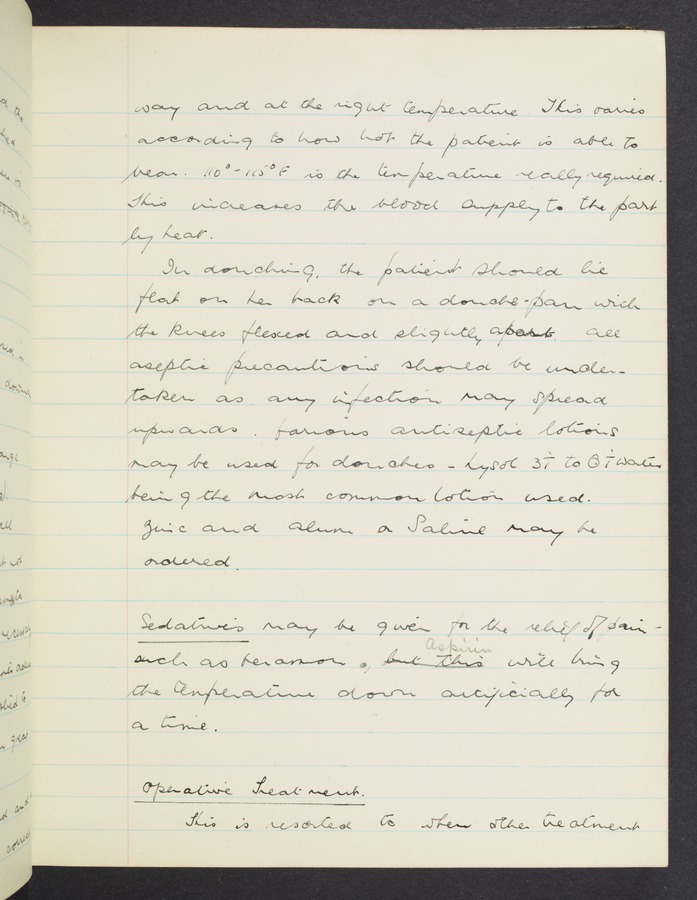 way and at the right temperature. This varies
according to how hot the patient is able to
bear. 110° - 115°F is the temperature really required.
This increases the blood supply to the part
by heat.
In douching, the patient should lie
flat on her back on a douche-pan with
the knees flexed and slightly apart. all
aseptic precautions should be under-
taken as any infection may spread
upwards. Various antiseptic lotions
may be used for douches - Lysol ʒi to Oi water
being the most common lotion used.
Zinc and alum or Saline may be
ordered.
Sedatives may be given for the relief of pain -
Aspirin
such as veramon, but this will bring
the temperature down artificially for
a time.
Operative Treatment.
This is resorted to when other treatment